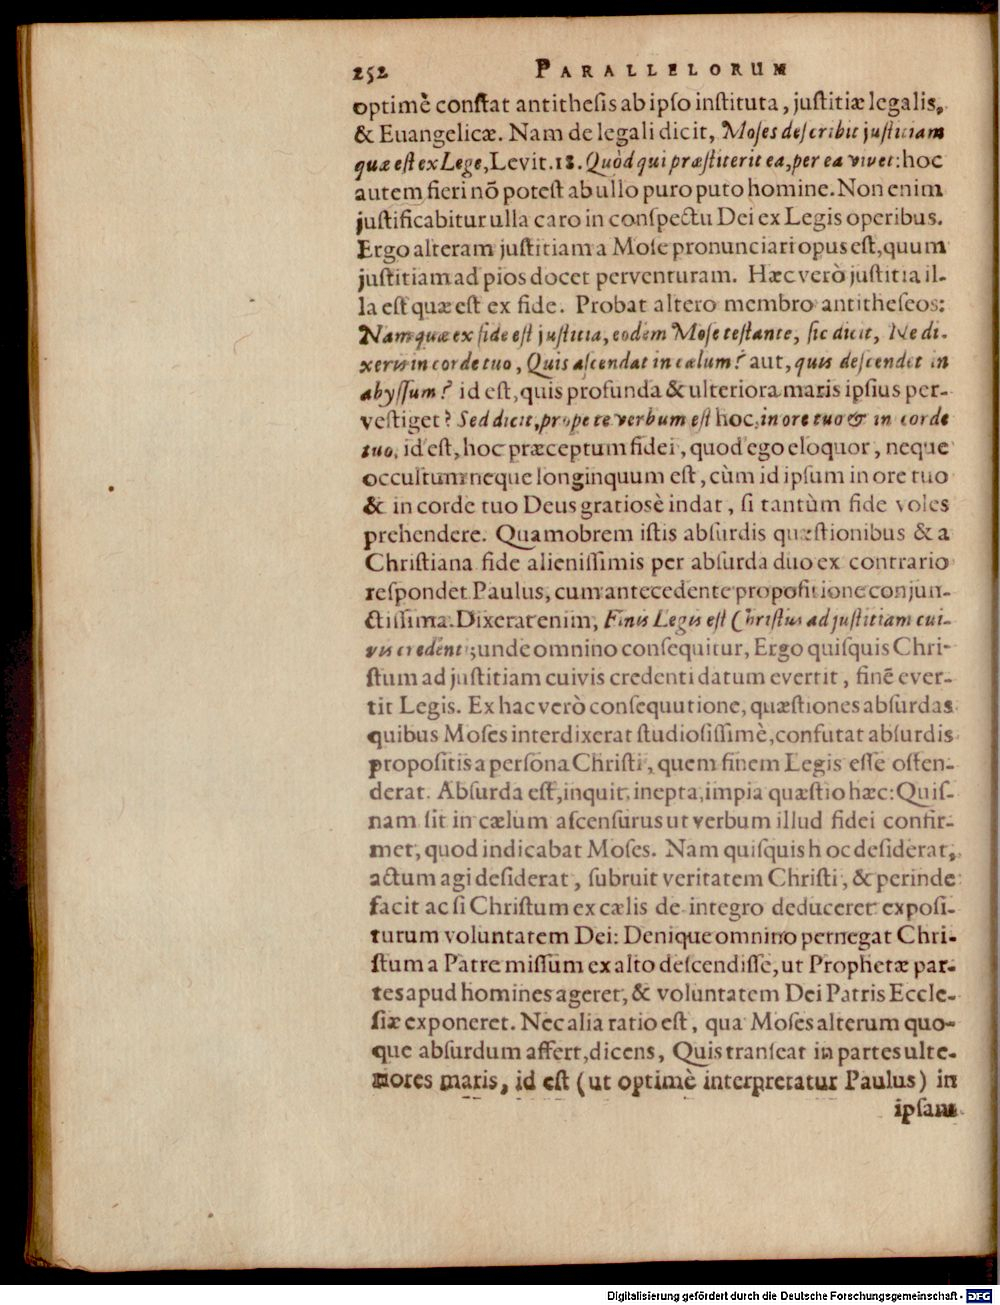 252 PARALLELORUM
optimè constat antithesis ab ipso instituta, justitiæ legalis,
& Euangelicæ. Nam de legali dicit, Moses describit justitiam
quæ est ex Lege, Levit.18. Quòd qui præstiterit ea, per ea vivet: hoc
autem fieri nō potest ab ullo puro puto homine. Non enim
justificabitur ulla caro in conspectu Dei ex Legis operibus.
Ergo alteram justitiam a Mose pronunciari opus est, quum
justitiam ad pios docet perventuram. Hæc verò justitia il-
la est quæ est ex fide. Probat altero membro antitheseos:
Nam quæ ex fide est justitia, eodem Mose testante, sic dicit, Ne di-
xeris in corde tuo, Quis ascendat in cælum? aut, quis descendet in
abyssum? id est, quis profunda & ulteriora maris ipsius per-
vestiget? Sed dicit, prope te verbum est hoc, in ore tuo & in corde
tuo, id est, hoc præceptum fidei, quod ego eloquor, neque
occultum neque longinquum est, cùm id ipsum in ore tuo
& in corde tuo Deus gratiosè indat, si tantùm fide voles
prehendere. Quamobrem istis absurdis quæstionibus & a
Christiana fide alienissimis per absurda duo ex contrario
respondet Paulus, cum antecedente propositione conjun-
ctissima. Dixerat enim, Finis Legis est Christus ad justitiam cui-
vis credenti; unde omnino consequitur, Ergo quisquis Chri-
stum ad justitiam cuivis credenti datum evertit, finē ever-
tit Legis. Ex hac verò consequutione, quæstiones absurdas
quibus Moses interdixerat studiosissimè, confutat absurdis
propositis a persona Christi, quem finem Legis esse osten-
derat. Absurda est, inquit, inepta, impia quæstio hæc: Quis-
nam sit in cælum ascensurus ut verbum illud fidei confir-
met, quod indicabat Moses. Nam quisquis hoc desiderat,
actum agi desiderat, subruit veritatem Christi, & perinde
facit ac si Christum ex cælis de integro deduceret exposi-
turum voluntatem Dei: Denique omnino pernegat Chri-
stum a Patre missum ex alto descendisse, ut Prophetæ par-
tes apud homines ageret, & voluntatem Dei Patris Eccle-
siæ exponeret. Nec alia ratio est, qua Moses alterum quo-
que absurdum affert, dicens, Quis transeat in partes ulte-
riores maris, id est (ut optimè interpretatur Paulus) in
ipsam
Digitalisierung gefördert durch die Deutsche Forschungsgemeinschaft - DFG